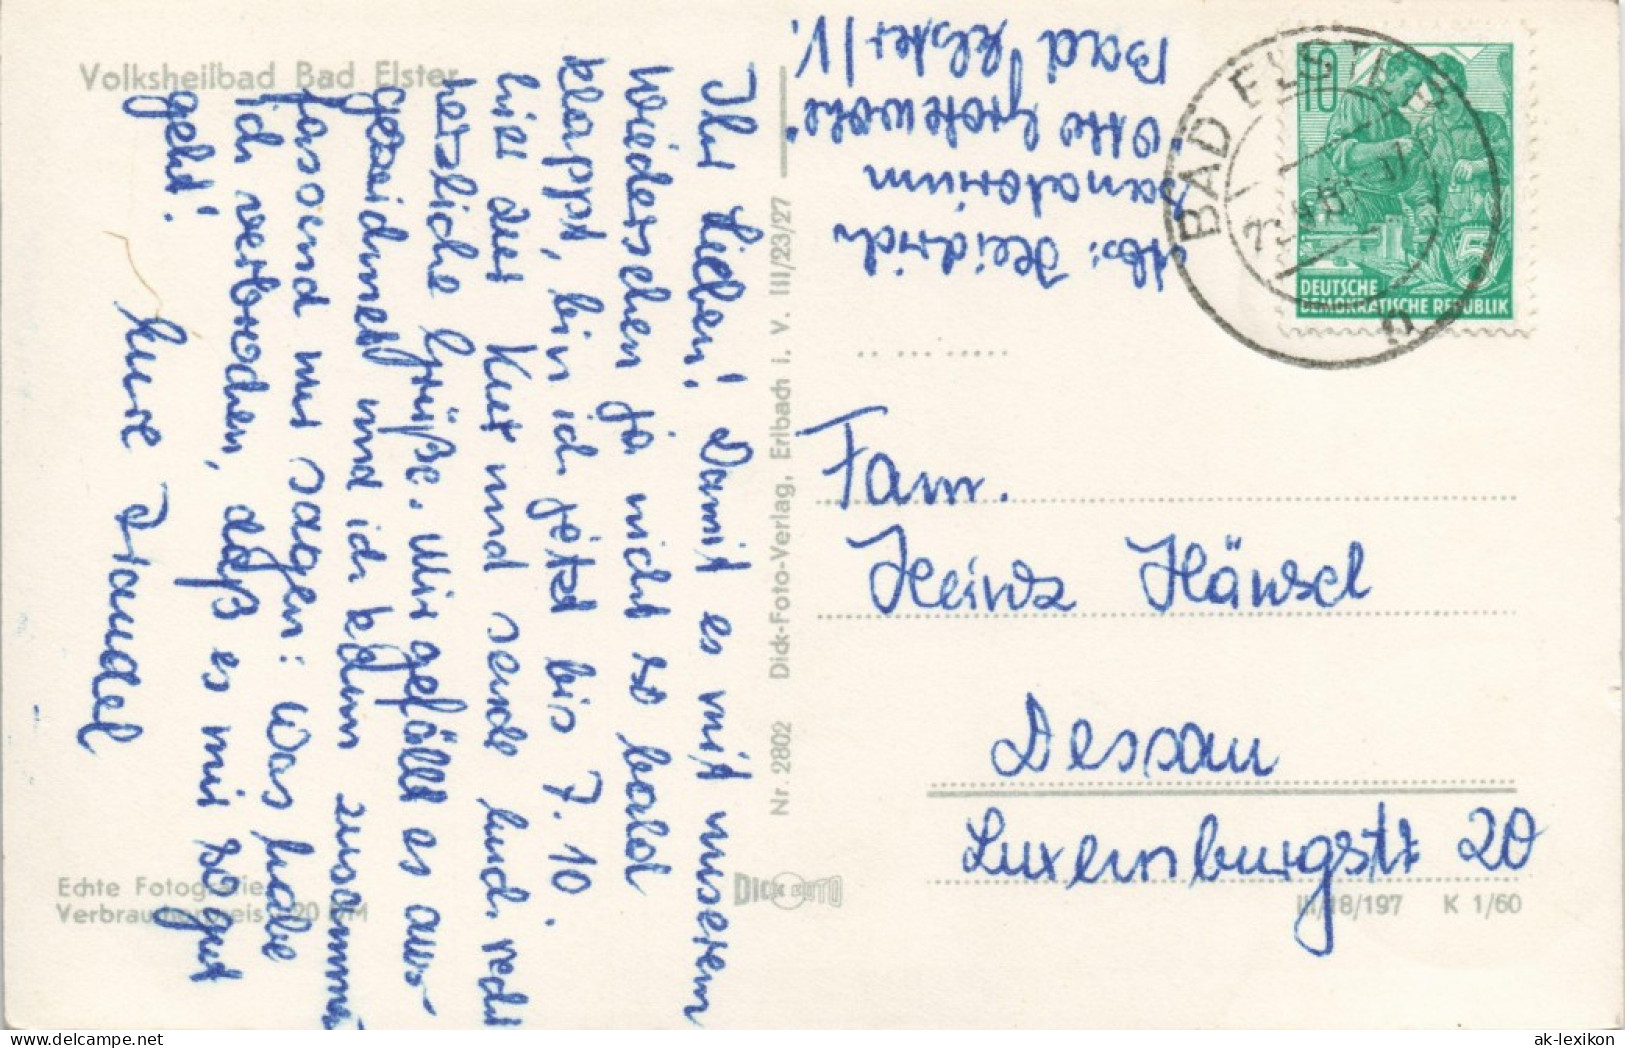 Volksheilbad Bad Elster
Ihr Lieben! Damit es mit unserem
Wiedersehen ja nicht so bald
klappt, bin ich jetzt bis 7.10.
hier zur Kur und sende Euch recht
herzliche Grüße. Mir gefällt es aus-
gezeichnet und ich kann zusammen-
fassend nur sagen: Was habe
ich verbrochen, daß es mir so gut
geht!
Eure Traudel
Echte Fotografie
Verbraucherpreis 20 DM
Nr. 2802 Dick-Foto-Verlag, Erlbach i. V. III/23/27
DICK FOTO
Abs: Heidrich
Sanatorium
"Otto Grotewohl"
Bad Elster/V.
BAD ELSTER
10
5
DEUTSCHE
DEMOKRATISCHE REPUBLIK
Fam.
Heinz Hänsel
Dessau
Luxemburgstr 20
III/18/197 K 1/60
ak-lexikon